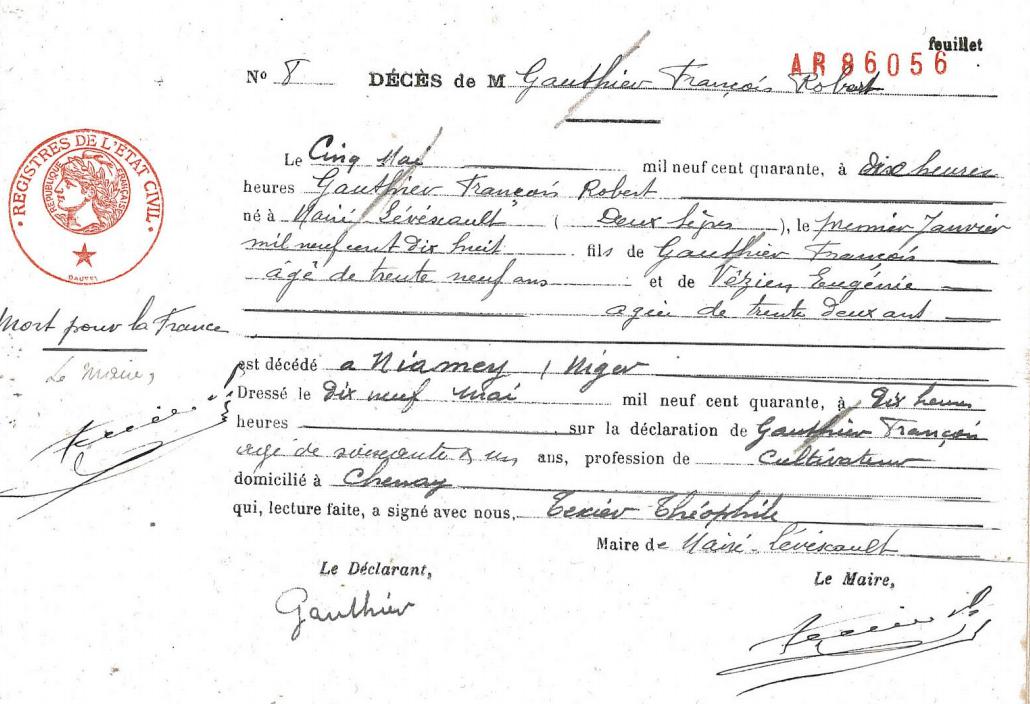 feuillet
AR 86056
No 8 DÉCÈS de M Gauthier François Robert
REGISTRES DE L'ÉTAT CIVIL
RÉPUBLIQUE FRANÇAISE
Le Cinq Mai mil neuf cent quarante, à dix heures
heures Gauthier François Robert
né à Mairé Lévescault ( Deux Sèvres ), le premier Janvier
mil neuf cent dix huit fils de Gauthier François
âgé de trente neuf ans et de Vézien Eugénie
agée de trente deux ans
Mort pour la France
Le Maire,
est décédé a Niamey / Niger
Dressé le dix neuf mai mil neuf cent quarante, à dix heures
heures sur la déclaration de Gauthier François
agé de soixante & un ans, profession de Cultivateur
domicilié à Chenay
qui, lecture faite, a signé avec nous, Texier Théophile
Maire de Mairé-Lévescault
Le Déclarant,
Le Maire,
Gauthier